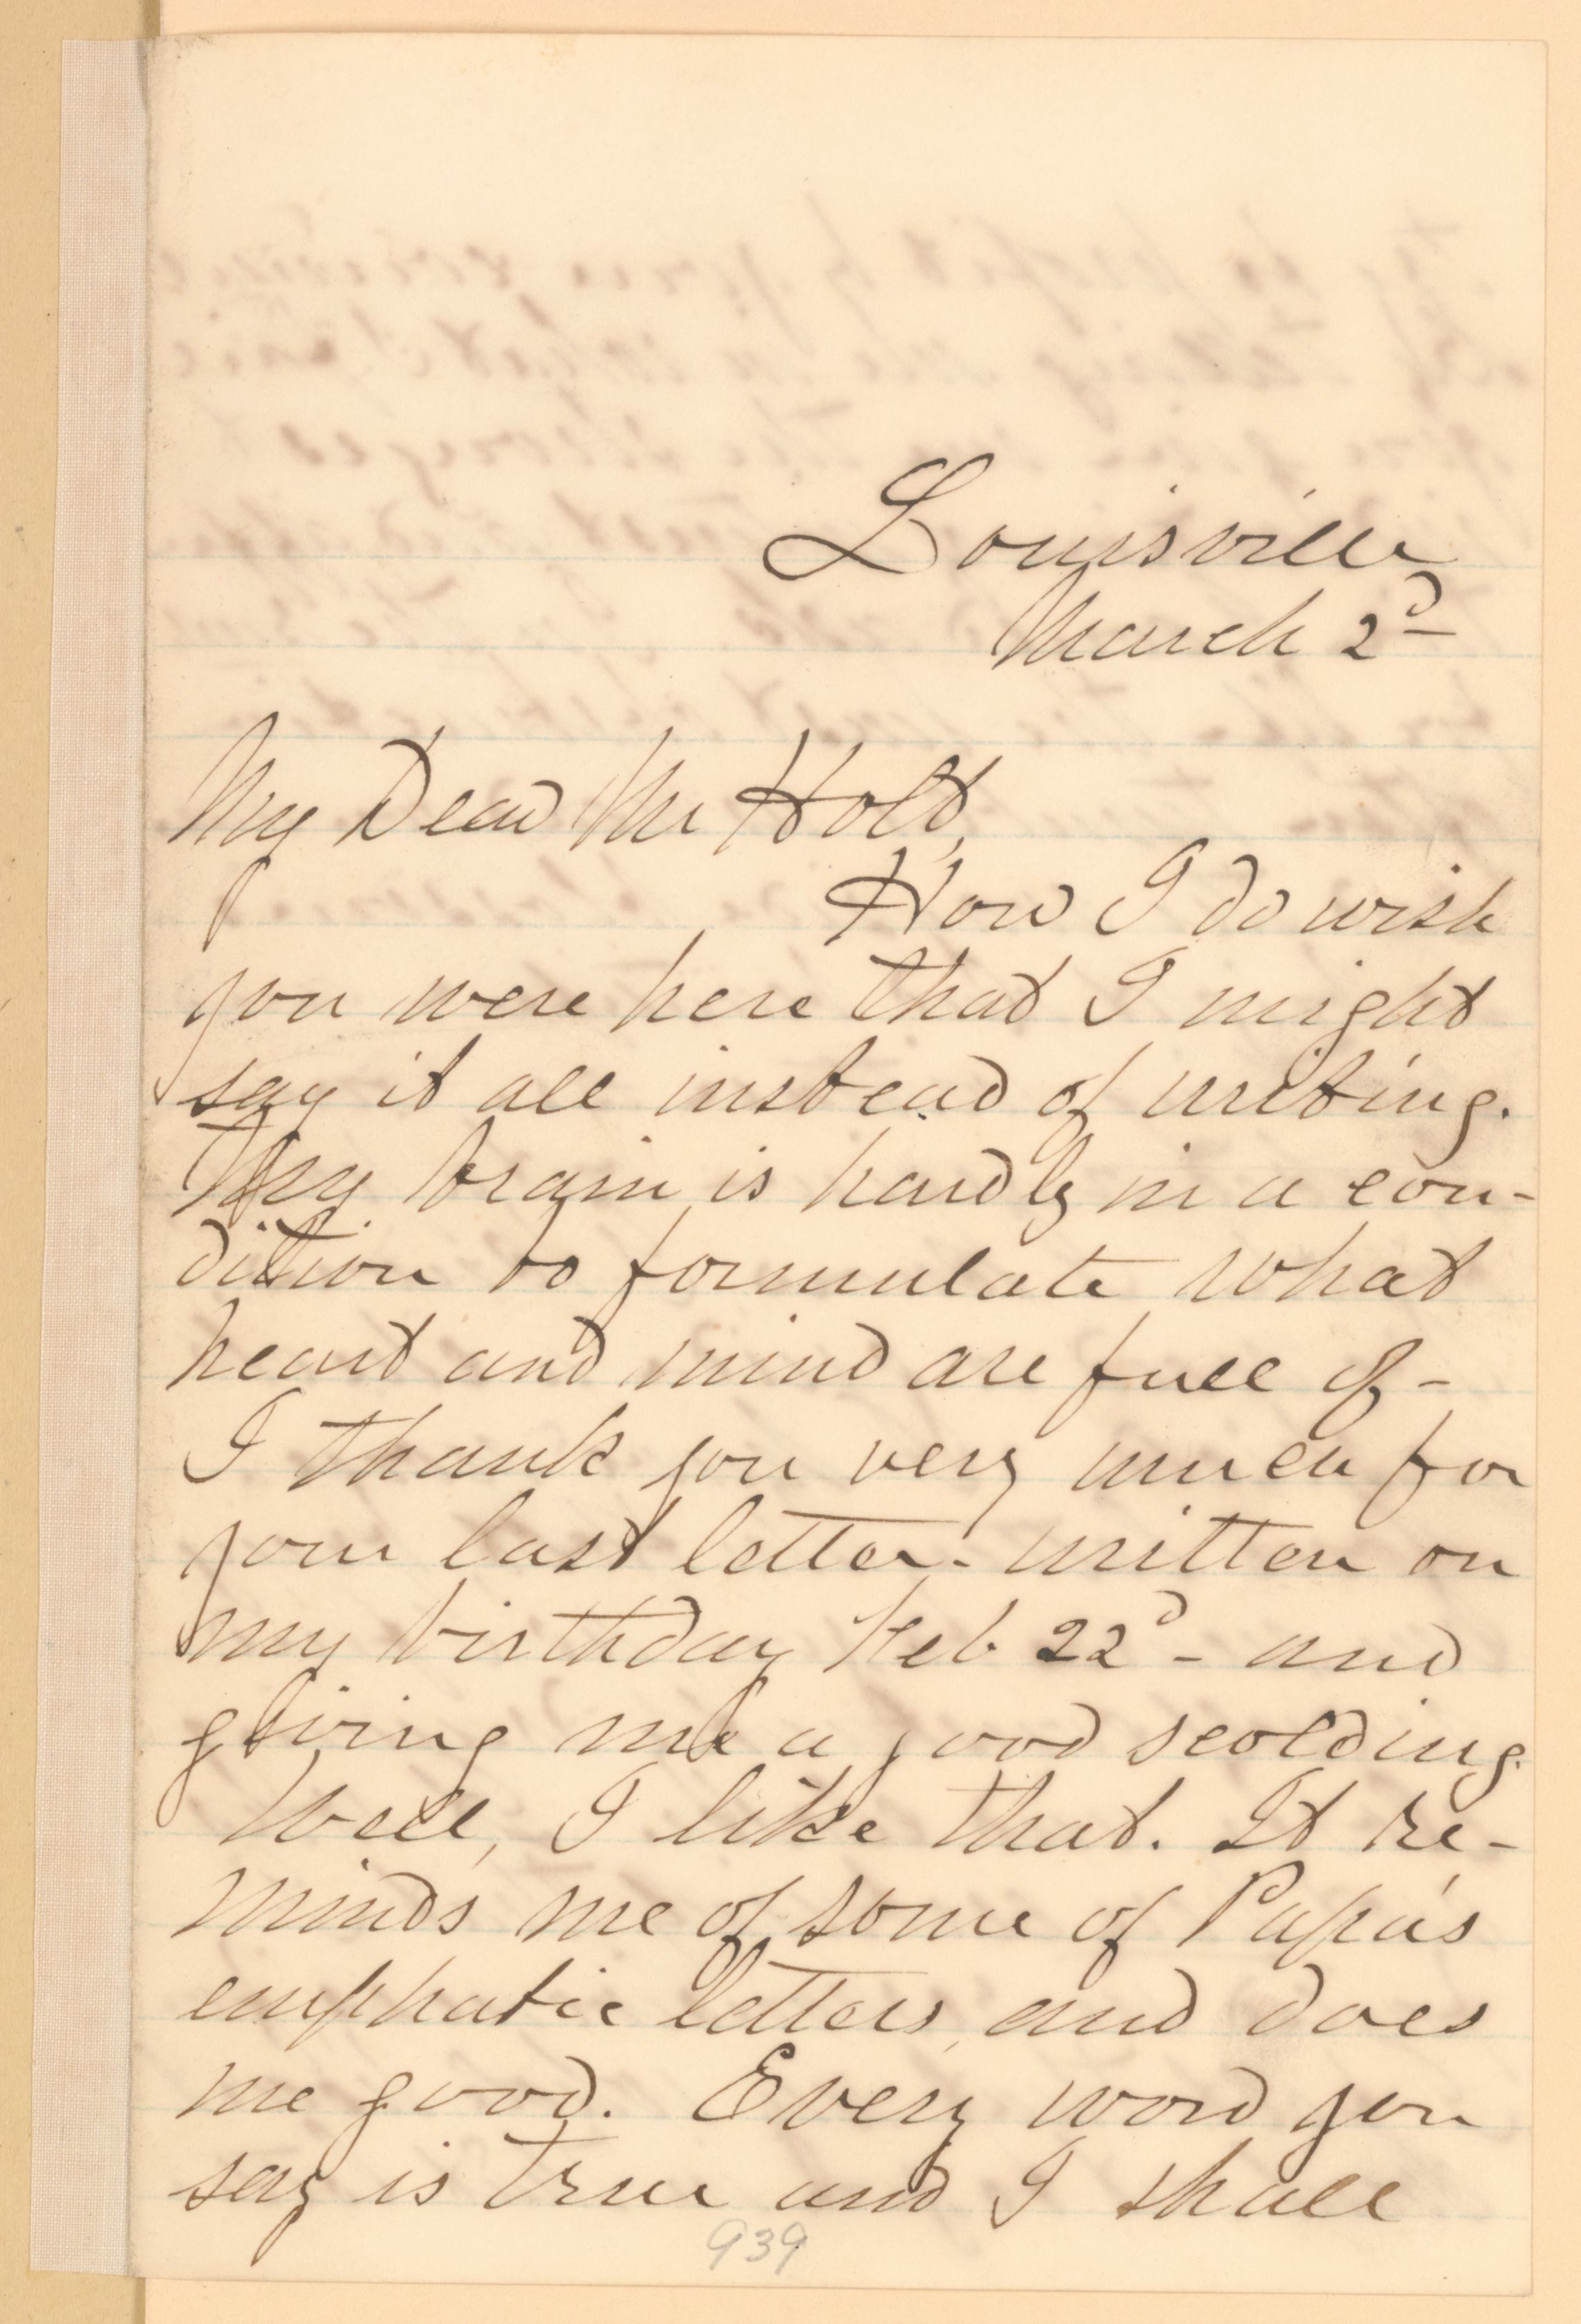 Louisville
March 2d
My Dear Mr Holt,
How I do wish
you were here that I might
say it all instead of writing.
My brain is hardly in a con-
dition to formulate what
heart and mind are full of -
I thank you very much for
your last letter - written on
my birthday Feb. 22d - and
giving me a good scolding.
Well, I like that. It re-
minds me of some of Papa's
emphatic letters, and does
me good. Every word you
say is true and I shall
939